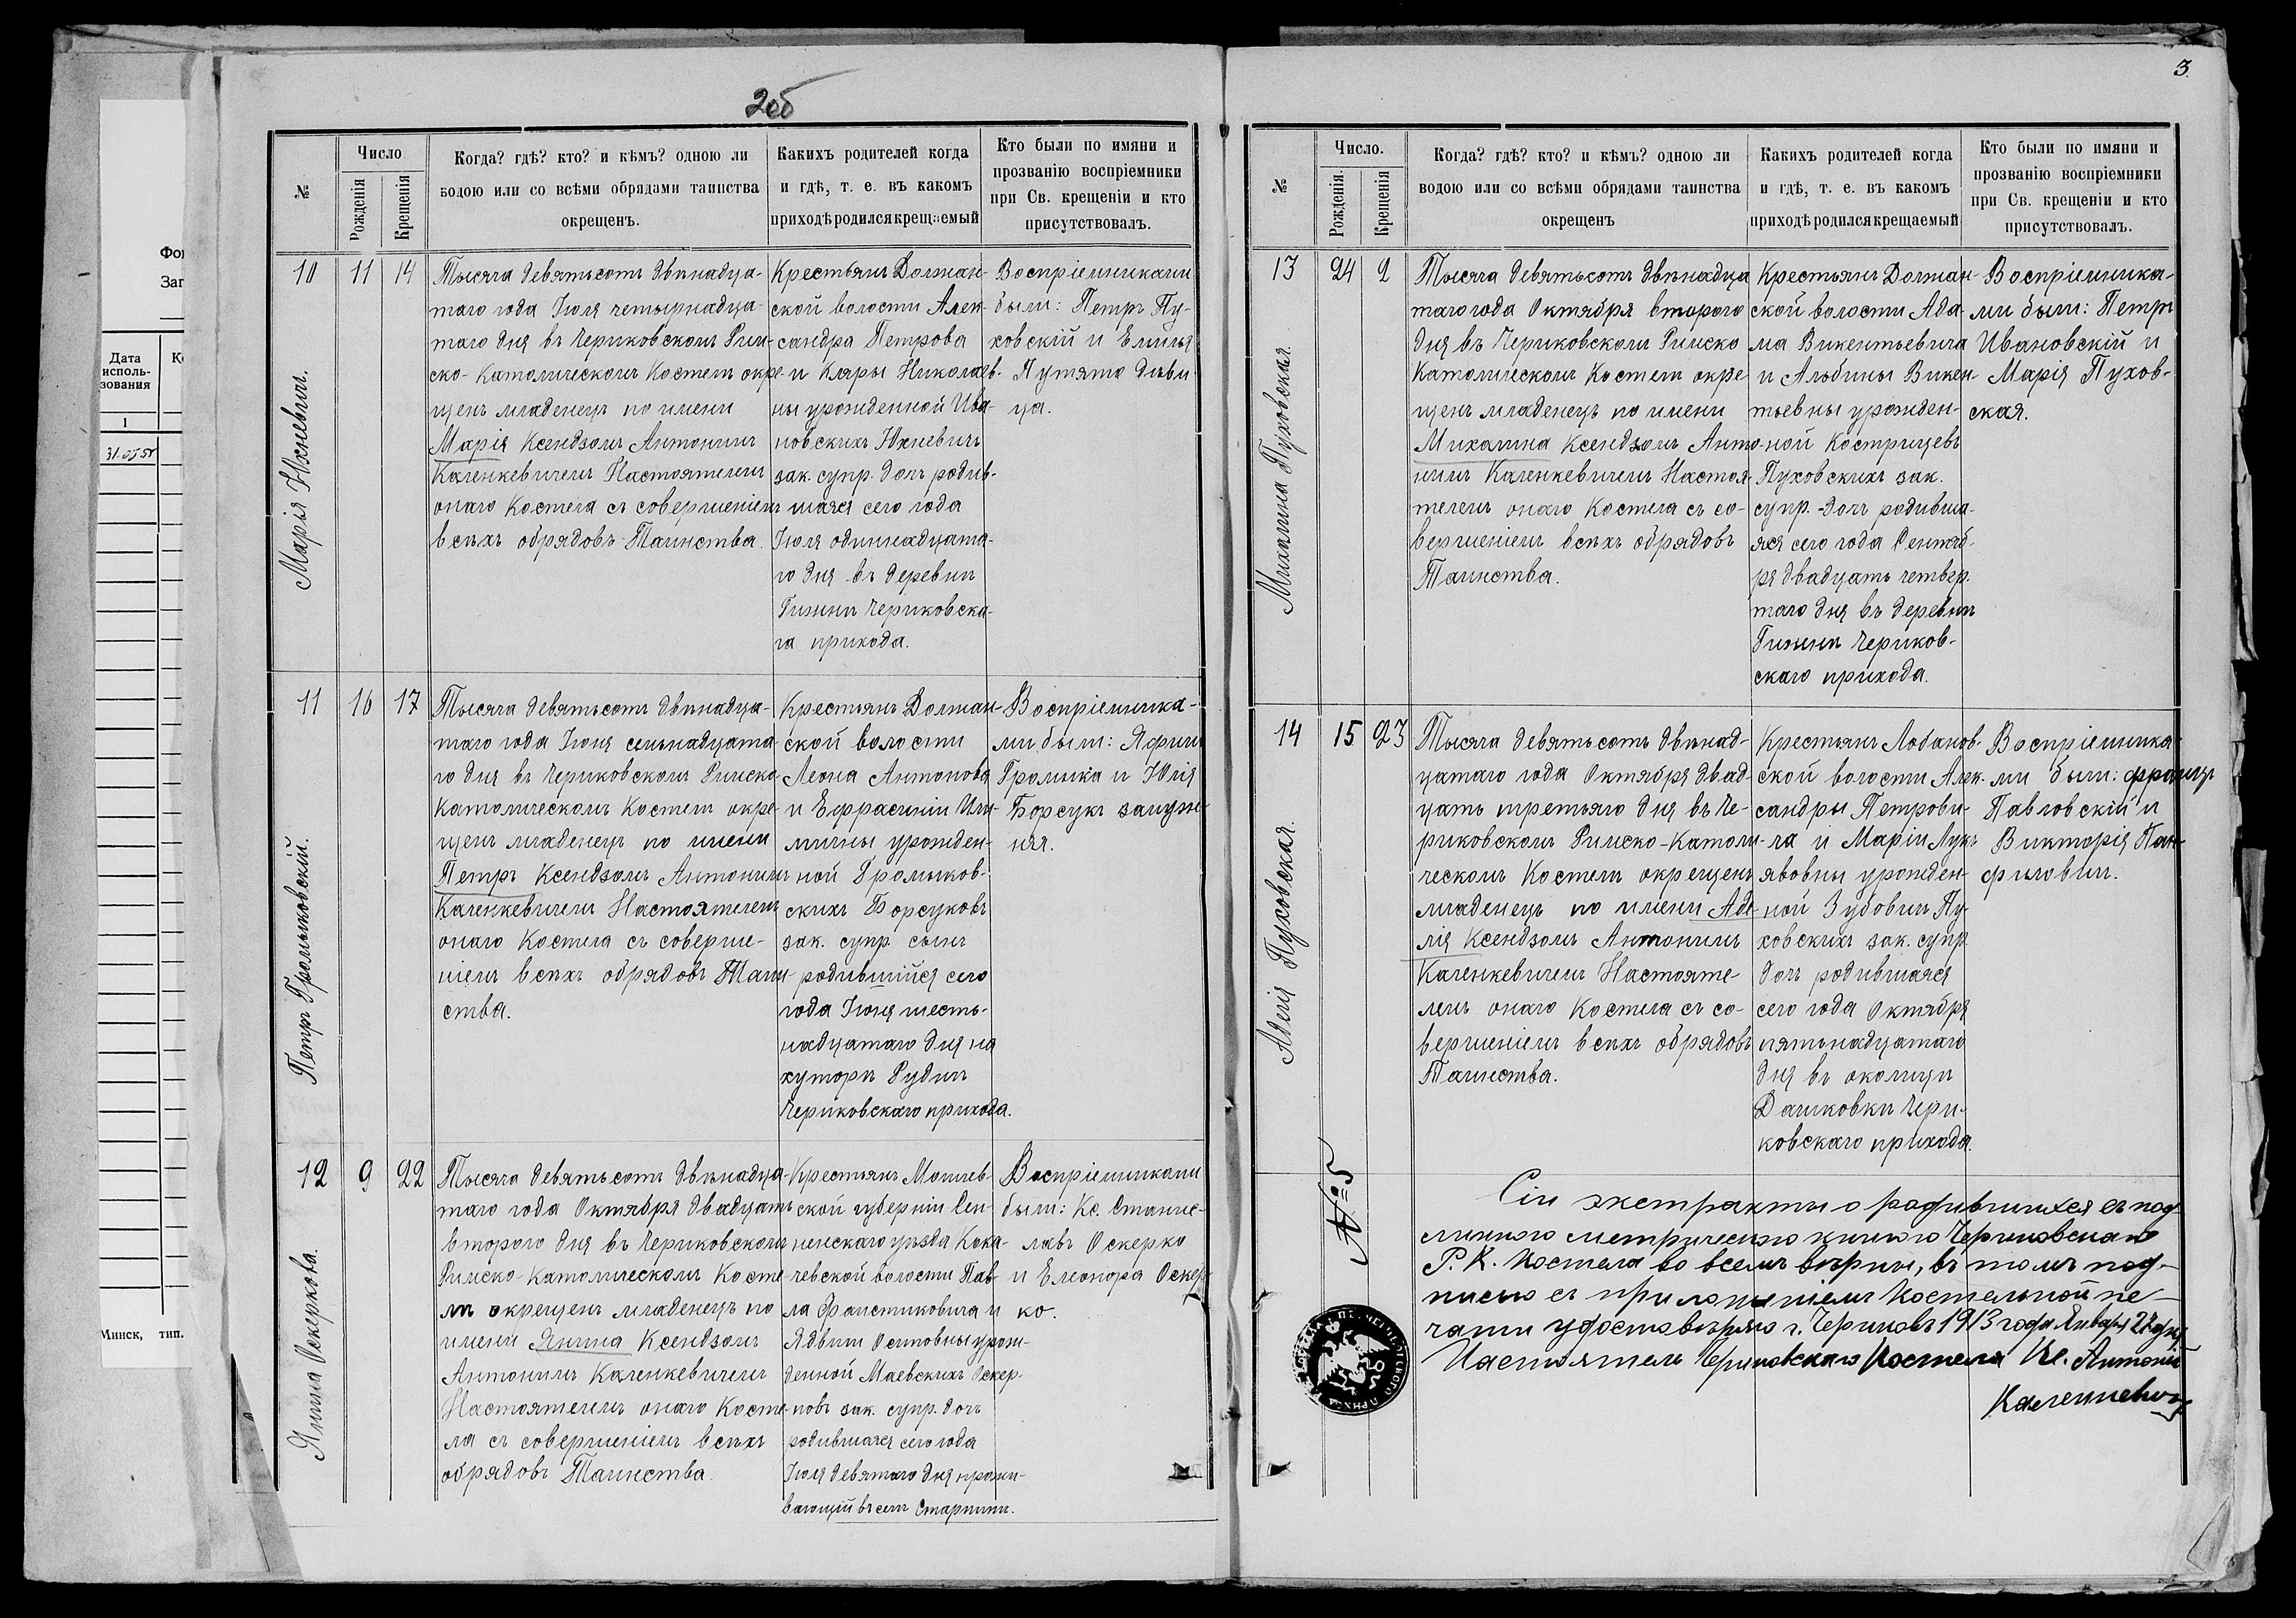 2об
№
Число
Рожденія
Крещенія
Когда? гдѣ? кто? и кѣмъ? одною ли
водою или со всѣми обрядами таинства
окрещенъ.
Какихъ родителей когда
и гдѣ, т. е. въ какомъ
приходѣ родился крещаемый
Кто были по имяни и
прозванію воспріемники
при Св. крещеніи и кто
присутствовалъ.
10
11
14
Марія Юхневичъ.
Тысяча девятьсотъ двѣнадца-
таго года Іюля четырнадца-
таго дня въ Чериковскомъ Рим-
ско-католическомъ Костелѣ окре-
щенъ младенецъ по имени
Марія Ксендзомъ Антонимъ
Каленкевичемъ Настоятелемъ
онаго Костела съ совершеніемъ
всѣхъ обрядовъ Таинства.
Крестьянъ Должан-
ской волости Алек-
сандра Петрова
и Клары Николаев-
ны урожденной Ива-
новскихъ Юхневичъ
зак. супр. дочь родив-
шаяся сего года
Іюля одиннадцата-
го дня въ деревни
Гижни Чериковска-
го прихода.
Воспріемниками
были: Петръ Пу-
ховскій и Емилія
Путято дѣви
ца.
11
16
17
Петръ Громыковскій.
Тысяча девятьсотъ двѣнадца-
таго года Іюня семьнадцата
го дня въ Чериковскомъ Римско-
католическомъ Костелѣ окре-
щенъ младенецъ по имени
Петръ Ксендзомъ Антонимъ
Каленкевичемъ Настоятелемъ
онаго Костела съ соверше-
ніемъ всѣхъ обрядовъ Таин-
ства.
Крестьянъ Должан-
ской волости
Леона Антонова
и Ефрасиніи Или-
мины урожден-
ной Громыков-
скихъ Борсуковъ
зак. супр. сынъ
родившійся сего
года Іюня шесть-
надцатаго дня на
хуторѣ Рудни
Чериковскаго прихода.
Воспріемника-
ми были: Яфимъ
Громыка и Юлія
Борсукъ замуж-
няя.
12
9
22
Янина Оскеркова.
Тысяча девятьсотъ двѣнадца-
таго года Октября двадцать
второго дня въ Чериковскомъ
Римско-католическомъ Косте-
лѣ окрещенъ младенецъ по
имени Янина Ксендзомъ
Антонимъ Каленкевичемъ
Настоятелемъ онаго Косте-
ла съ совершеніемъ всѣхъ
обрядовъ Таинства.
Крестьянъ Могилев-
ской губерніи Сен-
ненскаго уѣзда Кока-
чевской волости Пав-
ла Фаустиковича и
Ядвиги Осиповны урож-
денной Маевскихъ Оскер-
ковъ зак. супр. дочь
родившаяся сего года
Іюля девятаго дня прожи-
вающій въ селѣ Старинки.
Воспріемниками
были: Кс. Станис-
лавъ Оскерко
и Елеонора Оскер
ко.
3.
№
Число.
Рожденія.
Крещенія
Когда? гдѣ? кто? и кѣмъ? одною ли
водою или со всѣми обрядами таинства
окрещенъ
Какихъ родителей когда
и гдѣ, т. е. въ какомъ
приходѣ родился крещаемый
Кто были по имяни и
прозванію воспріемники
при Св. крещеніи и кто
присутствовалъ.
13
24
2
Михалина Пуховская.
Тысяча девятьсотъ двѣнадца
таго года Октября второго
дня въ Чериковскомъ Римско
католическомъ Костелѣ окре
щенъ младенецъ по имени
Михалина Ксендзомъ Анто-
нимъ Каленкевичемъ Настоя-
телемъ онаго Костела съ со-
вершеніемъ всѣхъ обрядовъ
Таинства.
Крестьянъ Должан-
ской волости Ада-
ма Викентьевича
и Альбины Викен
тьевны урожден-
ной Костричевъ
Пуховскихъ зак.
супр. дочь родивша-
яся сего года Сентяб-
ря двадцать четвер.
таго дня въ деревни
Гижни Чериков-
скаго прихода.
Воспріемника-
ми были: Петръ
Ивановскій и
Марія Пухов-
ская.
14
15
23
Аделя Пуховская.
Тысяча девятьсотъ двѣнад-
цатаго года Октября двад-
цать третьяго дня въ Че-
риковскомъ Римско-Католи-
ческомъ Костелѣ окрещенъ
младенецъ по имени Аде-
лія Ксендзомъ Антонимъ
Каленкевичемъ Настояте-
лемъ онаго Костела съ со-
вершеніемъ всѣхъ обрядовъ
Таинства.
Крестьянъ Лобанов-
ской волости Алек-
сандры Петрови-
ча и Маріи Лукъ
яновны урожден-
ной Зубовичъ Пу-
ховскихъ зак. супр
дочь родившаяся
сего года Октября
пятьнадцатаго
дня въ околицы
Дашковки Чери-
ковскаго прихода.
Воспріемника-
ми были: Францъ
Павловскій и
Викторія Пан-
филовичъ.
№ 5
Сіи экстракты о родившихся съ под
линною метрическою книгою Чериковскаго
Р. К. Костела во всемъ вѣрны, въ томъ под-
писью съ приложеніемъ Костельной пе-
чати удостовѣряю г. Чериковъ 1913 года Января 22 дня
Настоятель Чериковскаго Костела Кс. Антоній
Каленкевичъ
Фор
Заг
Дата
исполь-
зования
1
Минск, тип.